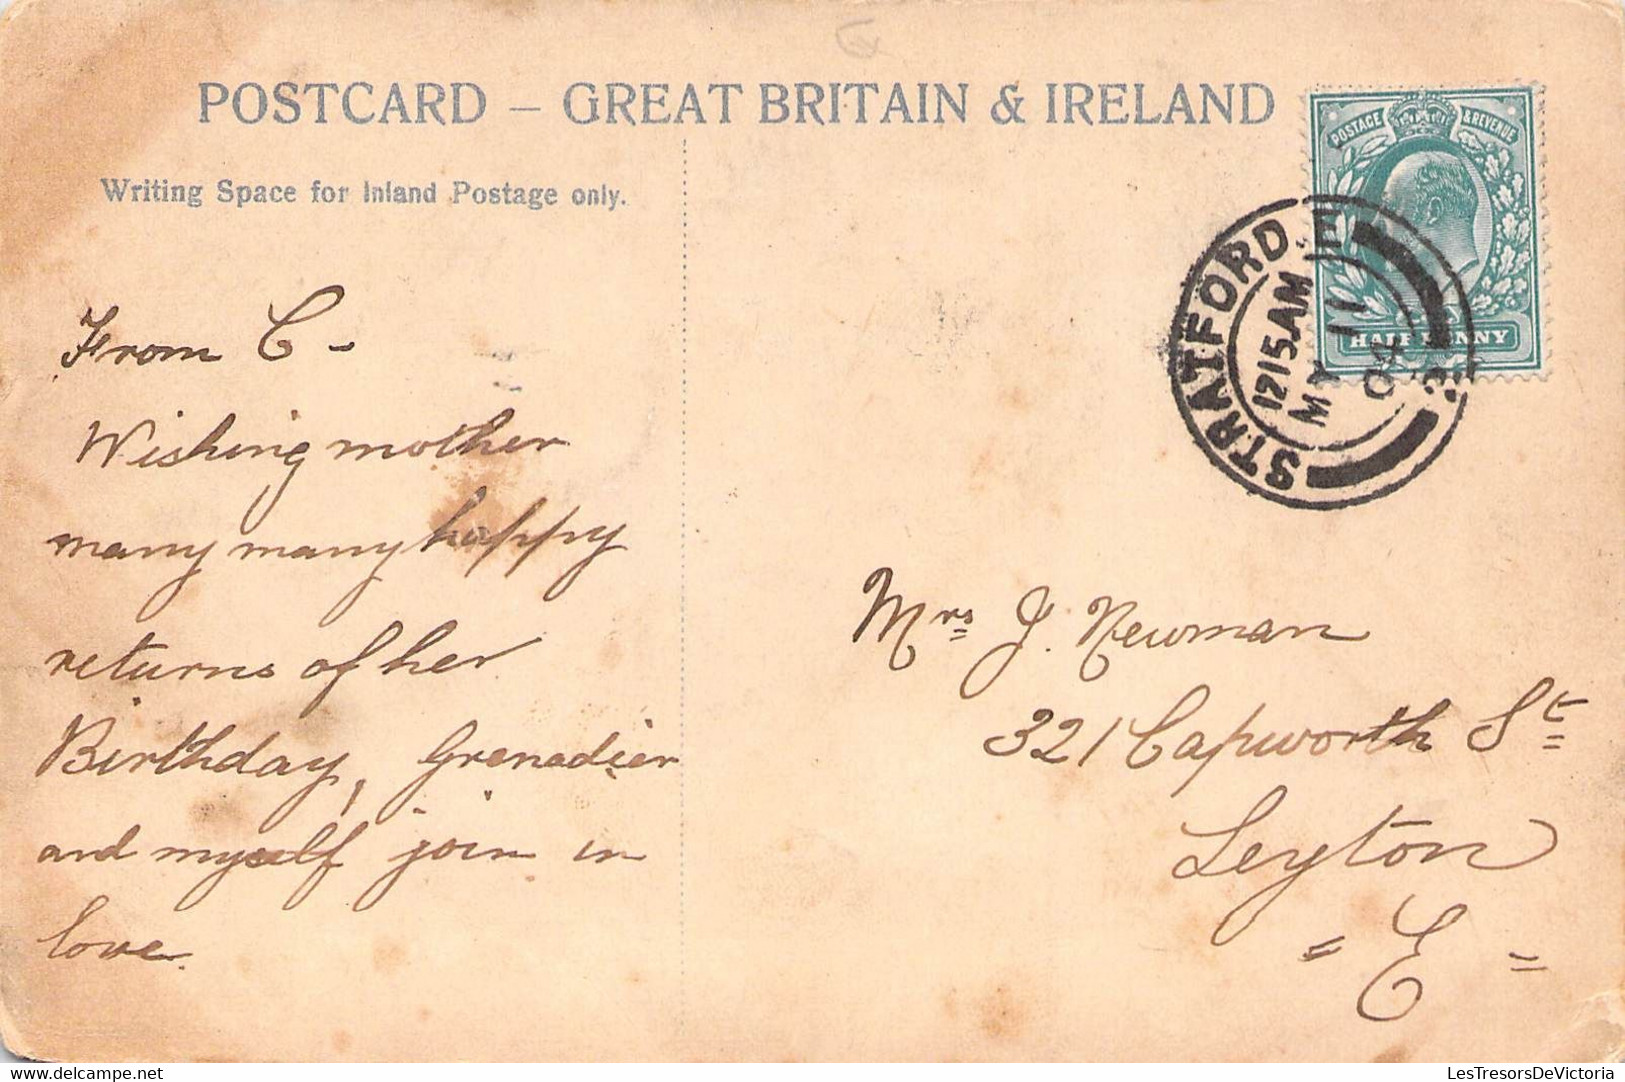 POSTCARD – GREAT BRITAIN & IRELAND
Writing Space for Inland Postage only.
From C -
Wishing mother
many many happy
returns of her
Birthday, Grenadier
and myself join in
love.
POSTAGE & REVENUE
HALFPENNY
STRATFORD. E
1215AM
MY 11
04
Mrs J. Newman
321 Capworth St
Leyton
= E =
delcampe.net
LesTresorsDeVictoria